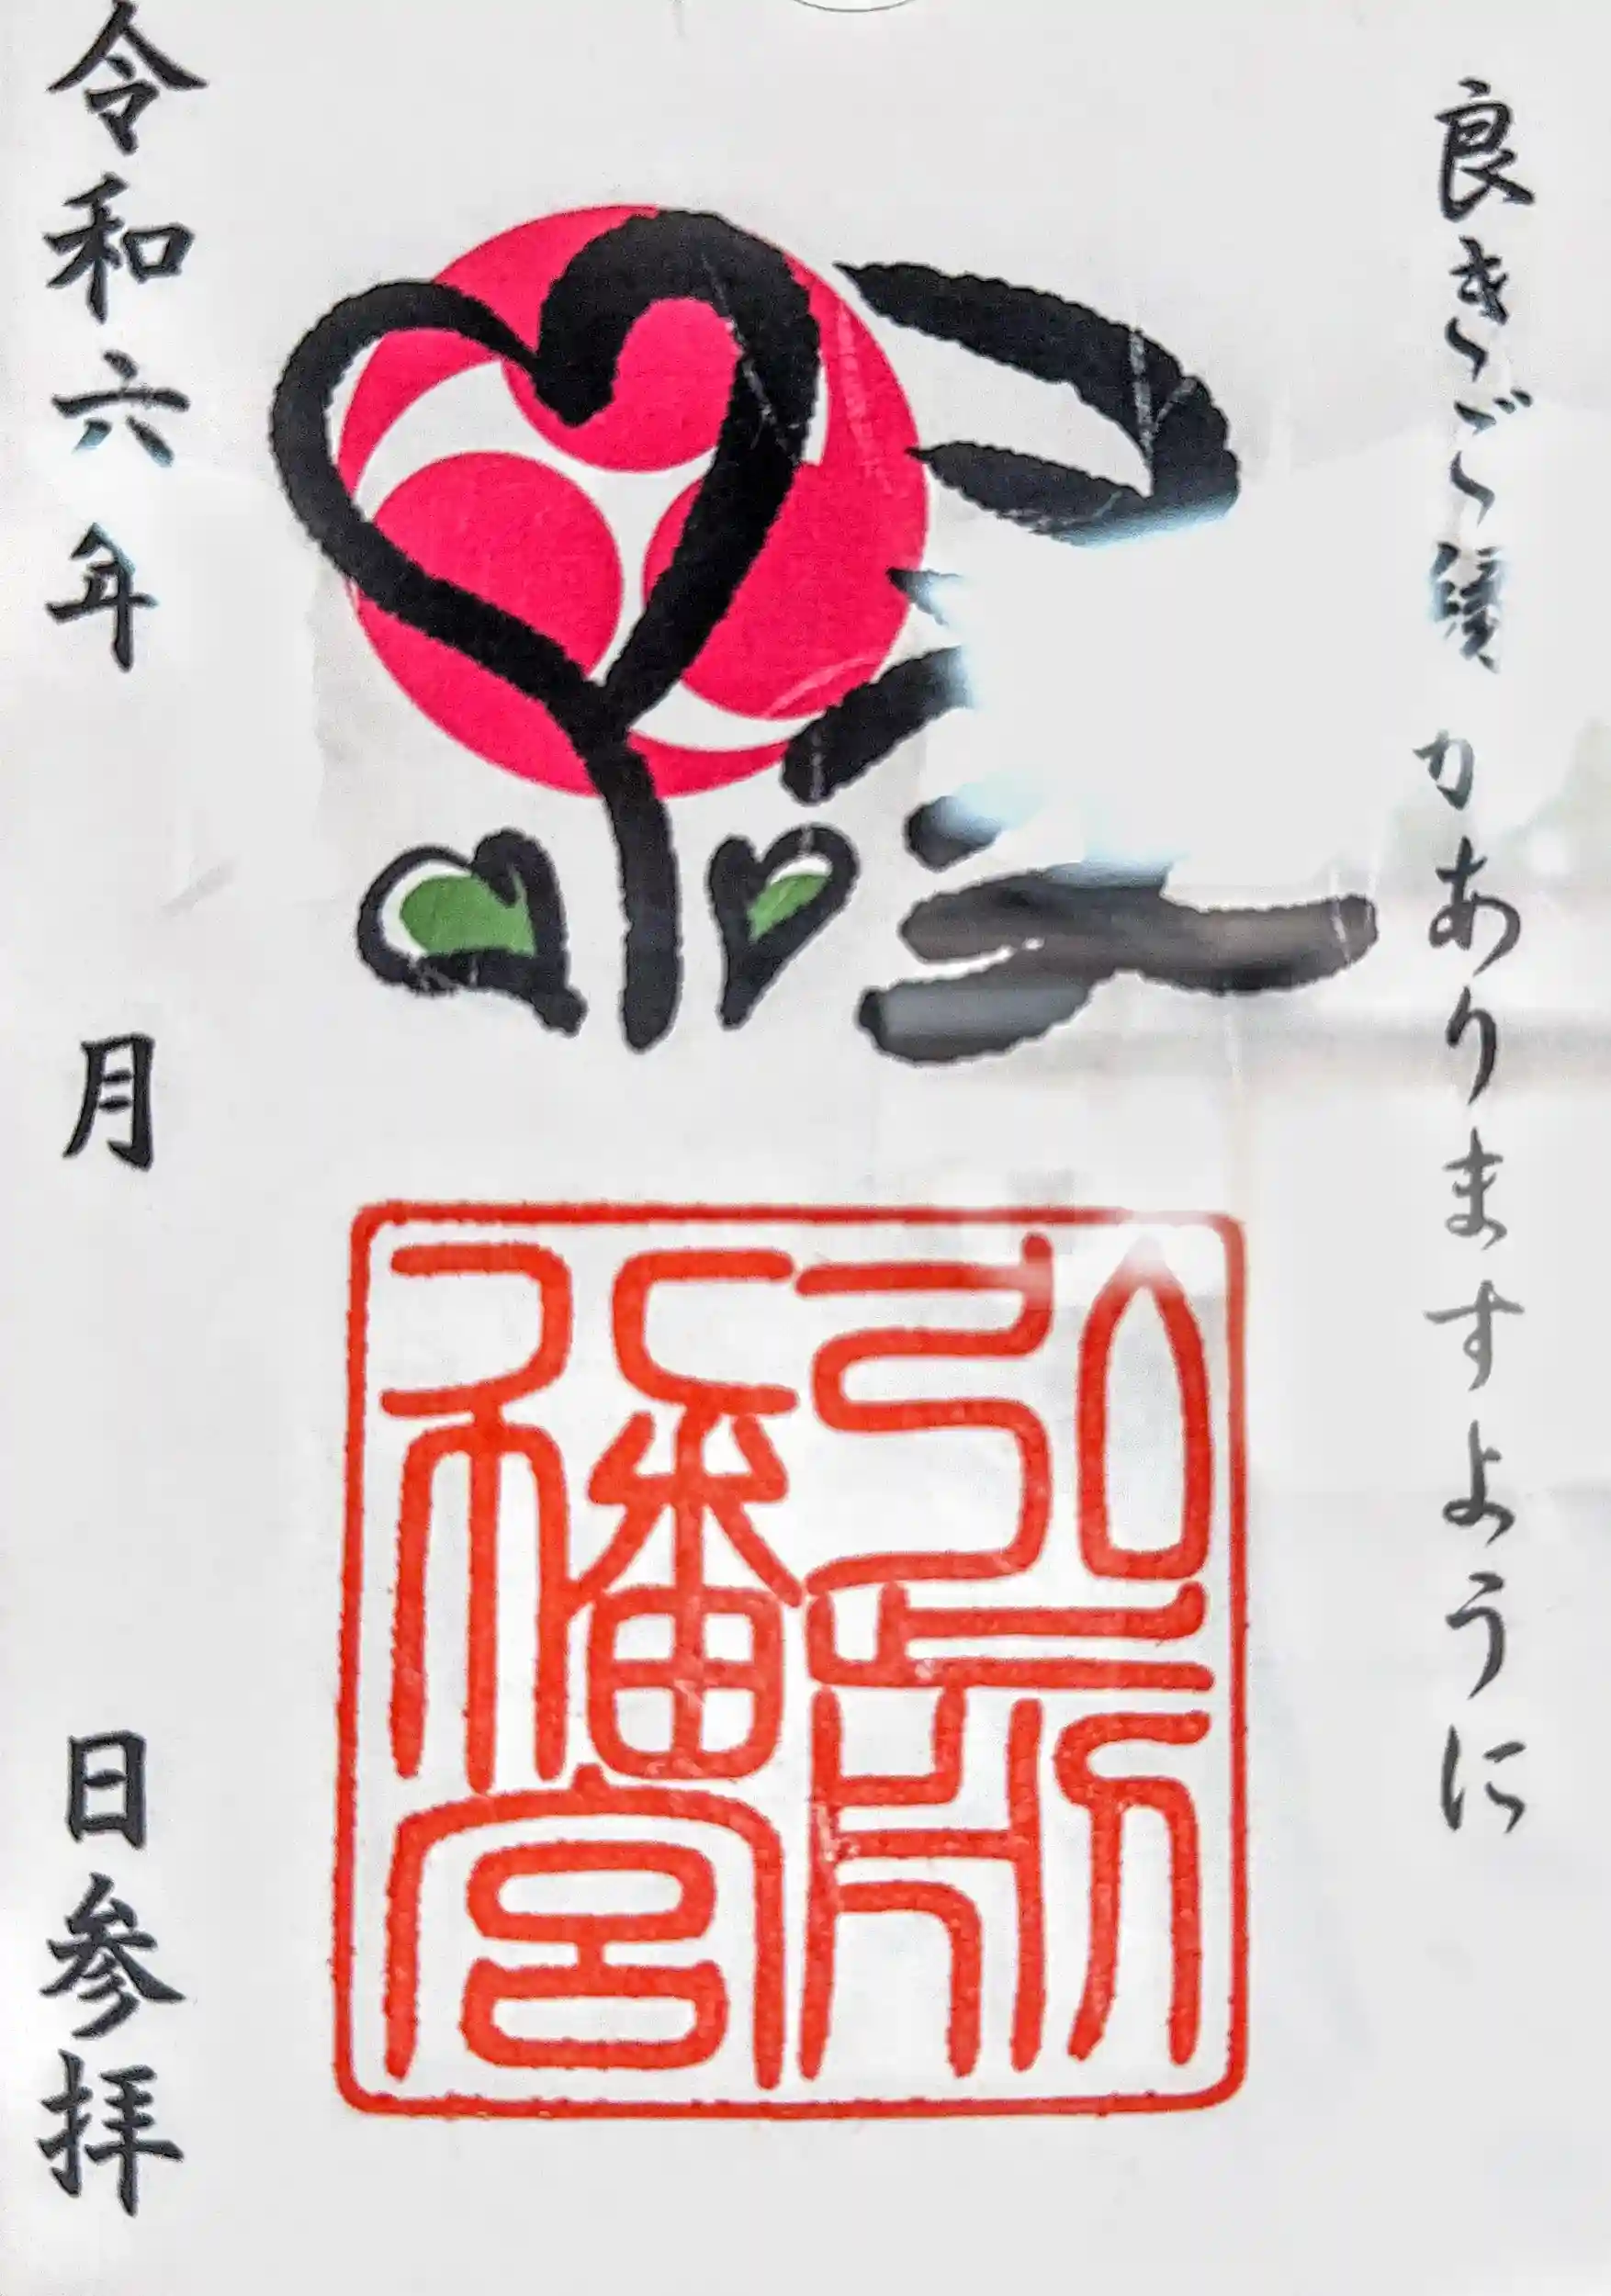 良きご縁がありますように
縁
弘前
八幡宮
令和六年 月 日参拝